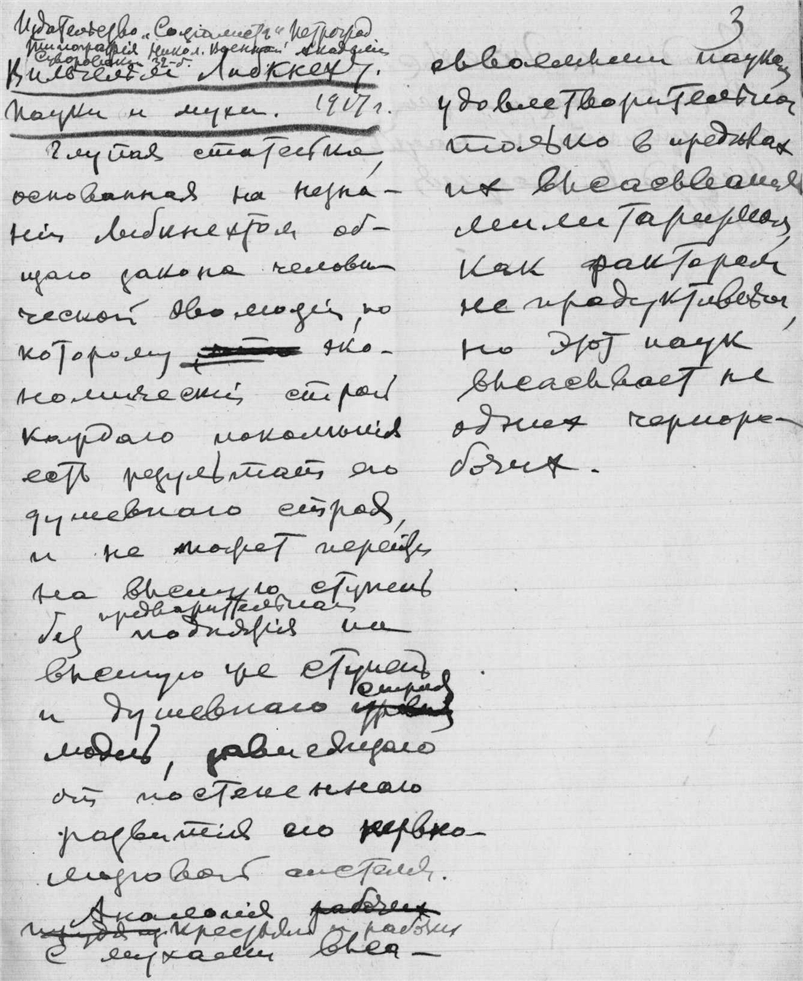 Издательство „Соціалистъ" Петроград
Типографія Никол. Военной Академіи
Суворовскій 32-б.
Вильгельм Либкнехт.
Пауки и мухи. 1917 г.
Глупая статейка,
основанная на незна-
ніи Либкнехтом об-
щаго закона человѣ-
ческой эволюціи, по
которому эко-
номическій строй
каждаго поколѣнія
есть результат его
душевнаго строя,
и не может перейти
на высшую ступень
без предварительнаго
поднятія на
высшую же ступень
и душевнаго строя
людей, зависящаго
от постепеннаго
развитія его нервно-
мозговой системы.
Аналогія рабочих
крестьян и рабочих
с мухами выса-
3
сываемыми пауком
удовлетворительна
только в предѣлах
их высасыванія
милитаризмом,
как фактором
не продуктивным,
но этот паук
высасывает не
одних черно­ра-
бочих.